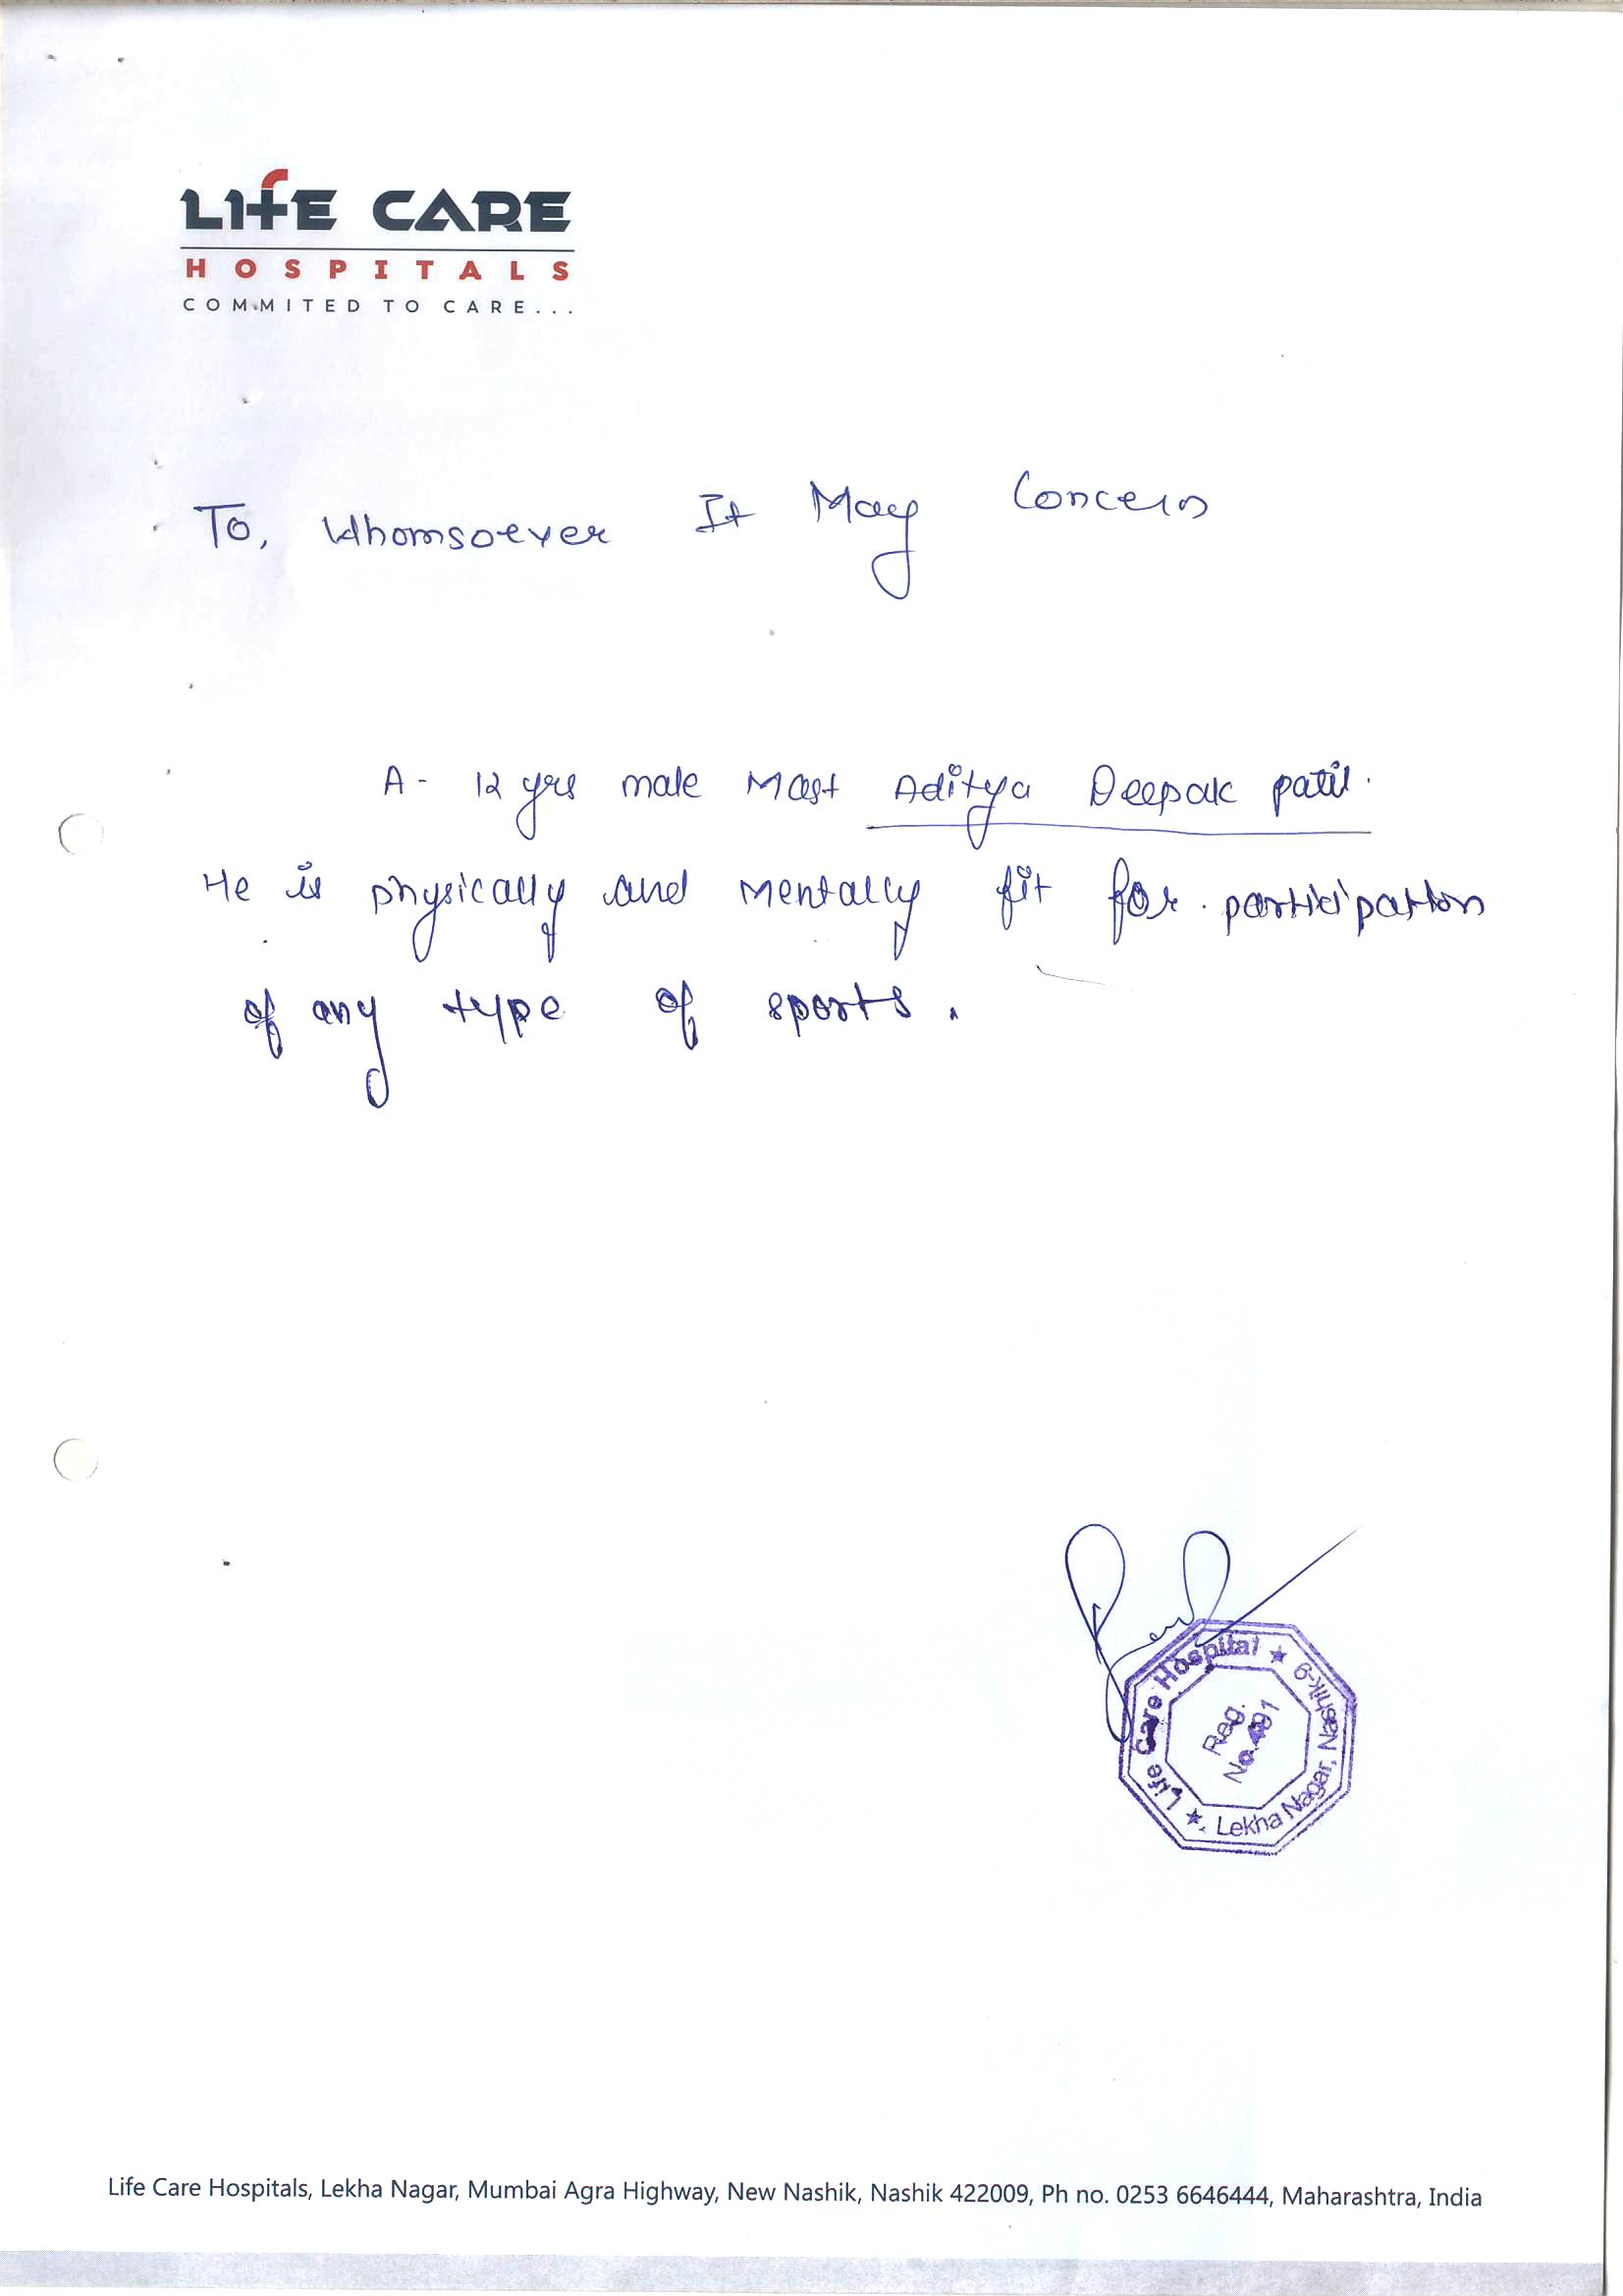 LIFE CARE
HOSPITALS
COMMITED TO CARE...
To, Whomsoever It May Concern
A- 12 yrs male Mast Aditya Deepak patil.
He is physically and mentally fit for participation
of any type of sports.
Life Care Hospital ★ Lekha Nagar, Nashik-9 ★
Reg.
No.491
Life Care Hospitals, Lekha Nagar, Mumbai Agra Highway, New Nashik, Nashik 422009, Ph no. 0253 6646444, Maharashtra, India